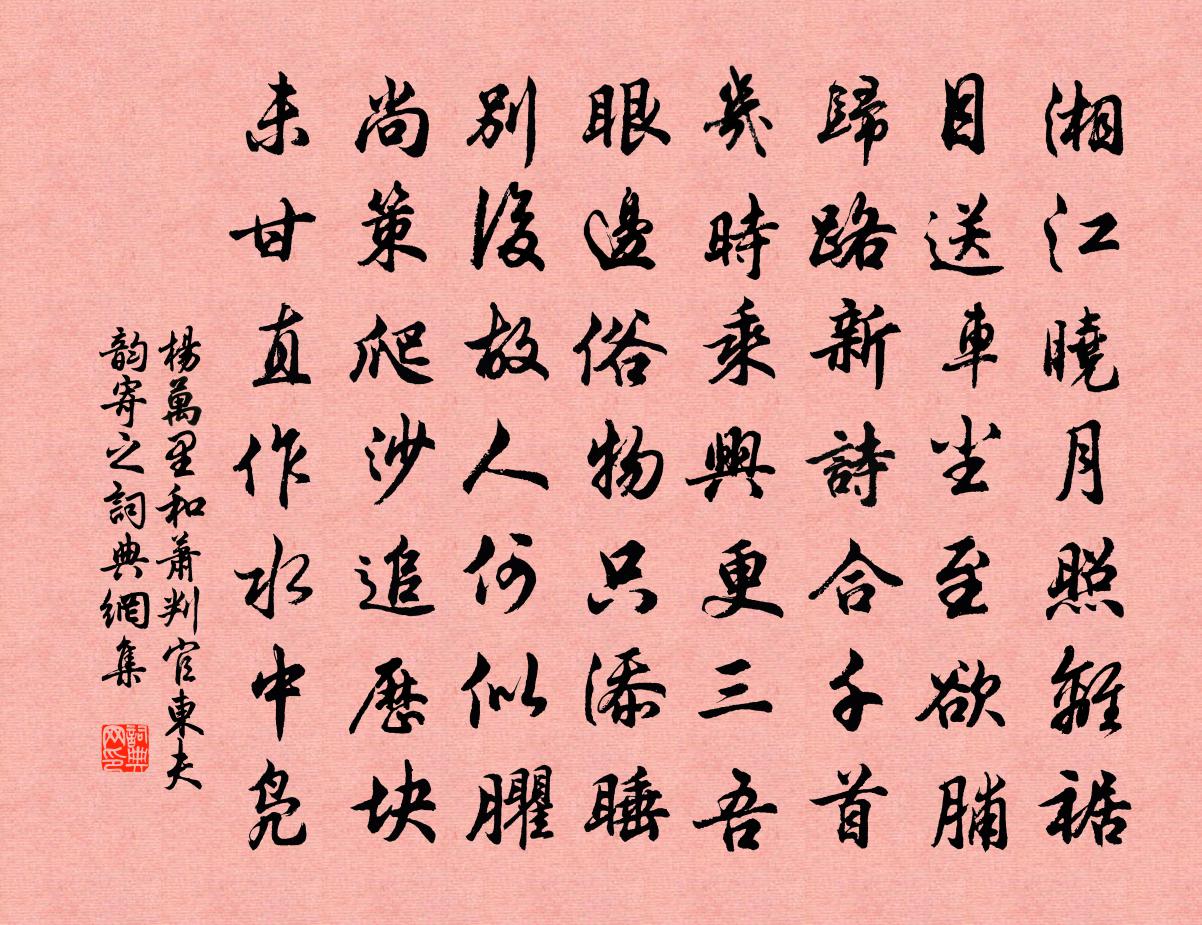 湘江曉月照離裾
目送車塵至欲脯
歸路新詩合千首
幾時乘興更三吾
眼邊俗物只添睡
別後故人何似臞
尚策爬沙追歷塊
未甘直作水中鳧
楊萬里和蕭判官東夫
韵寄之詞典網集
詞典網印